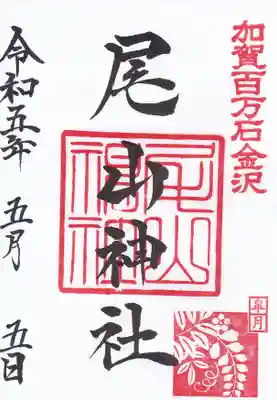 加賀百万石金沢
尾山神社
尾山神社
皐月
令和五年 五月 五日